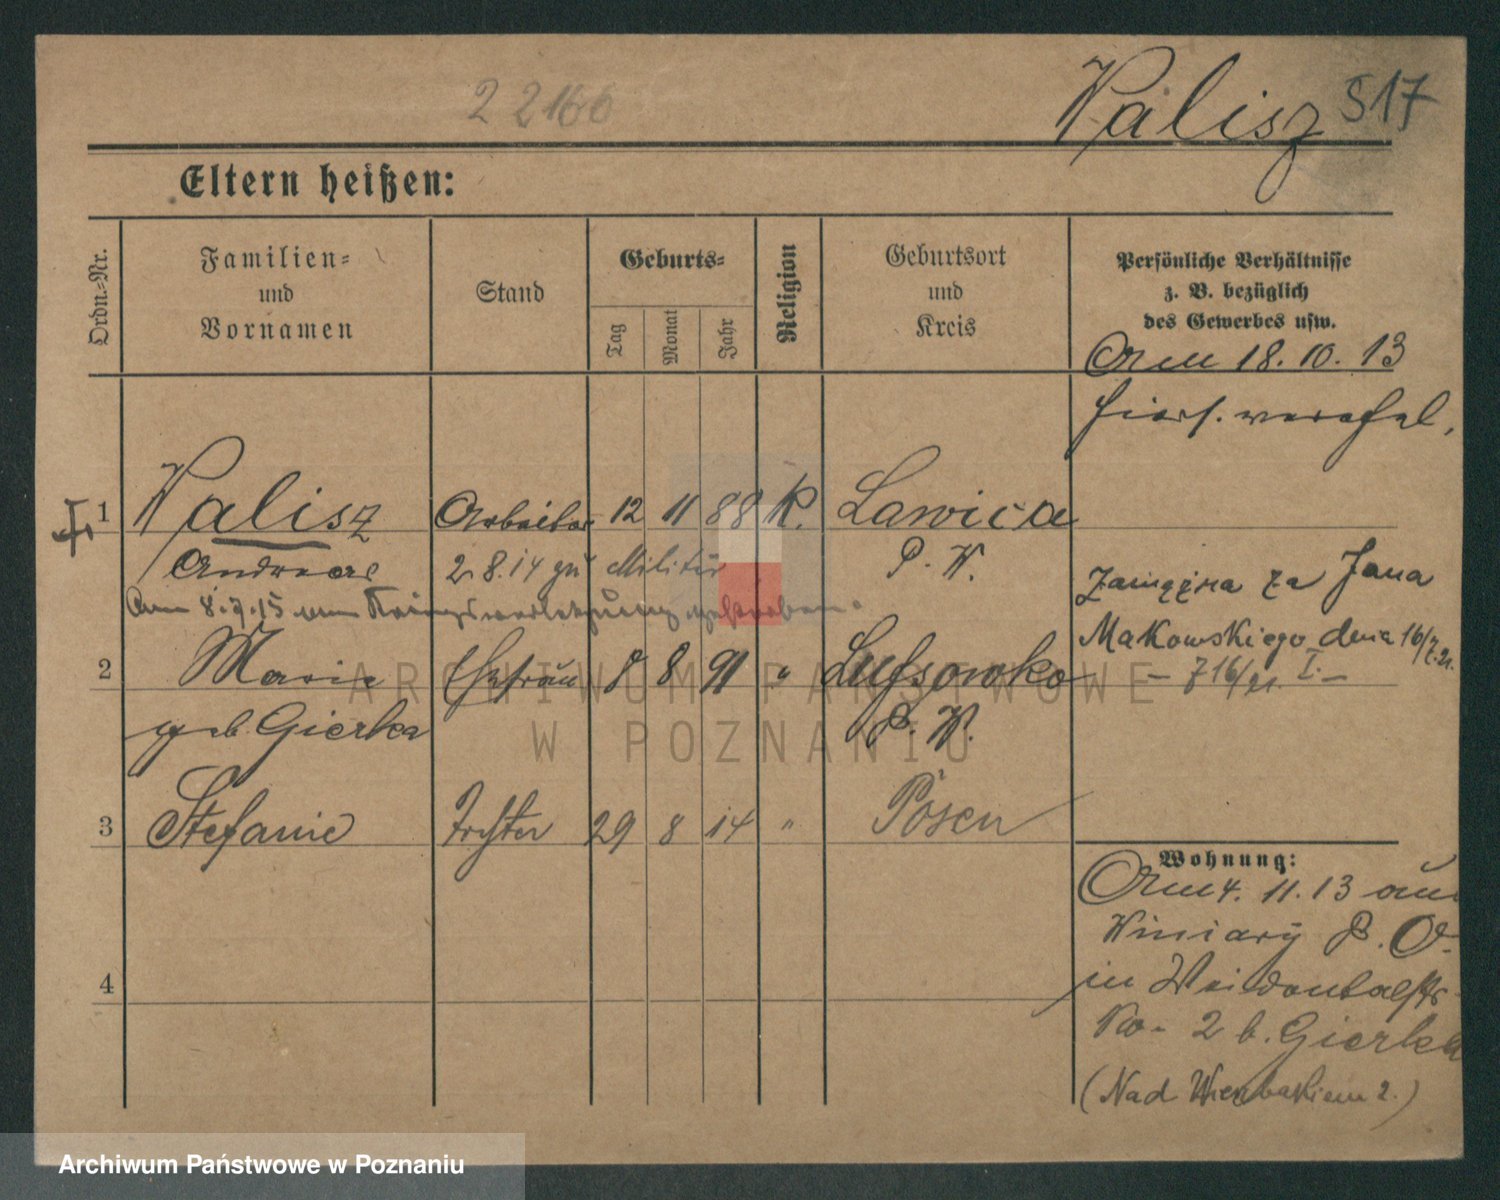 2 2166
Kalisz 517
Eltern heißen:
Ordn.-Nr.
Familien-
und
Vornamen
Stand
Geburts-
Tag
Monat
Jahr
Religion
Geburtsort
und
Kreis
Persönliche Verhältnisse
z. B. bezüglich
des Gewerbes usw.
Am 18.10.13
hiers. verehel.
1 Kalisz Arbeiter 12 11 88 K. Lawica
Andreas 2.8.14 zu Militär P. W.
Am 8.7.15 an Kriegsverletzung gestorben.
2 Marie Ehefrau 8 8 91 " Lussowko
geb. Gierka P. W.
3 Stefanie Tochter 29 8 14 " Posen
4
Zamężna za Jana
Makowskiego dnia 16/7.21.
- 716/21. I. -
Wohnung:
Am 4.11.13 aus
Winiary P. O.
in Weidentalstr
No. 2 b. Gierka
(Nad Wierzbakiem 2.)
ARCHIWUM PAŃSTWOWE
W POZNANIU
Archiwum Państwowe w Poznaniu